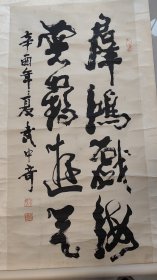 羣鴻戲海
雲鶴遊天
辛酉年夏武中奇